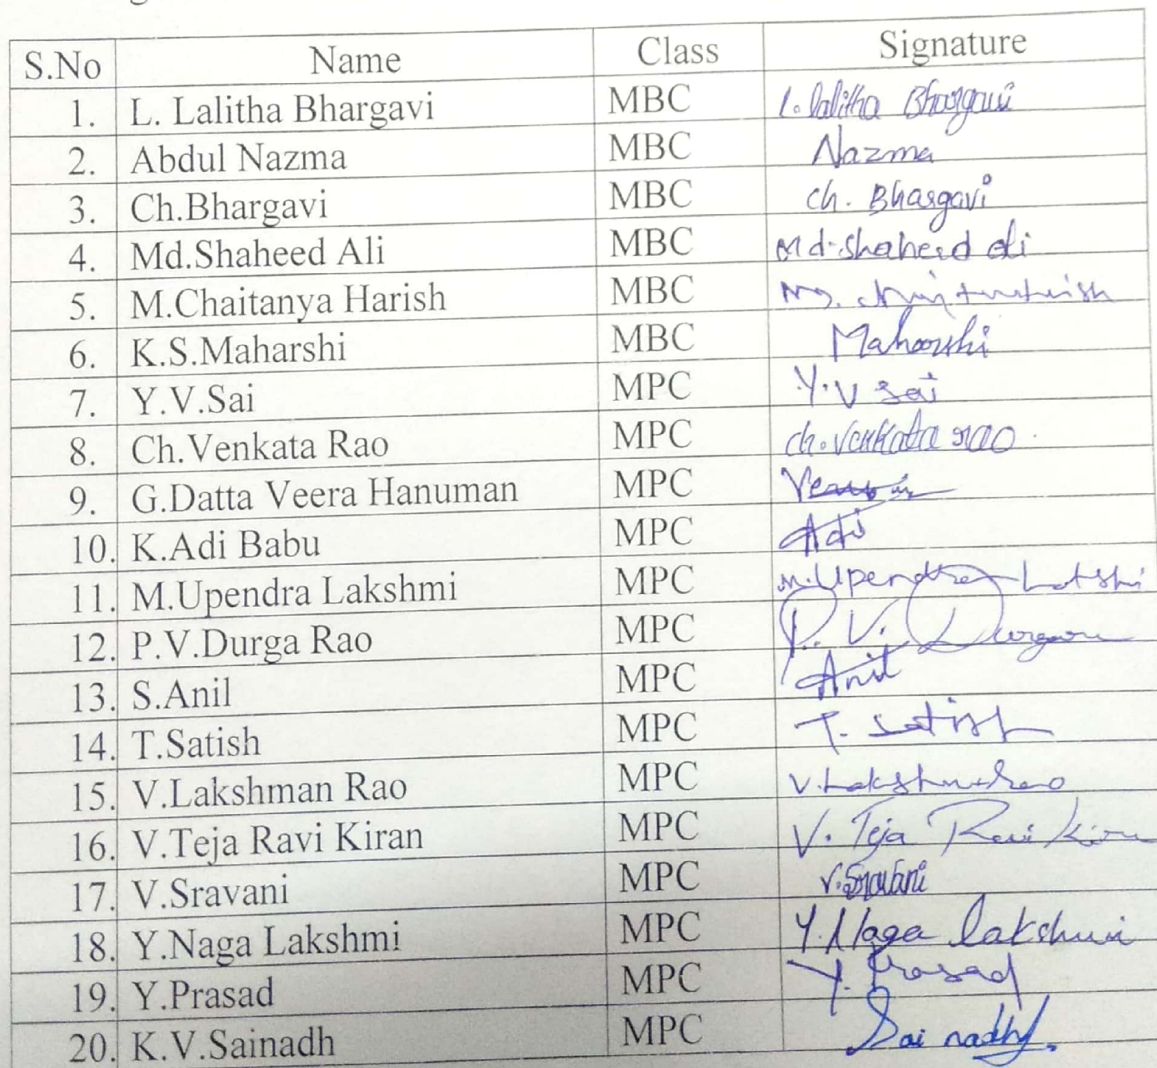 S.No Name Class Signature
1. L. Lalitha Bhargavi MBC L. lalitha Bhargavi
2. Abdul Nazma MBC Nazma
3. Ch.Bhargavi MBC ch. Bhargavi
4. Md.Shaheed Ali MBC Md.shaheed ali
5. M.Chaitanya Harish MBC
6. K.S.Maharshi MBC Maharshi
7. Y.V.Sai MPC Y.V sai
8. Ch.Venkata Rao MPC ch.venkata rao
9. G.Datta Veera Hanuman MPC
10. K.Adi Babu MPC Adi
11. M.Upendra Lakshmi MPC m.Upendra
12. P.V.Durga Rao MPC P. V.
13. S.Anil MPC Anil
14. T.Satish MPC T. Satish
15. V.Lakshman Rao MPC
16. V.Teja Ravi Kiran MPC V. Teja Ravi Kiran
17. V.Sravani MPC V.Sravani
18. Y.Naga Lakshmi MPC Y.Naga lakshmi
19. Y.Prasad MPC Y. Prasad
20. K.V.Sainadh MPC Sai nadh.